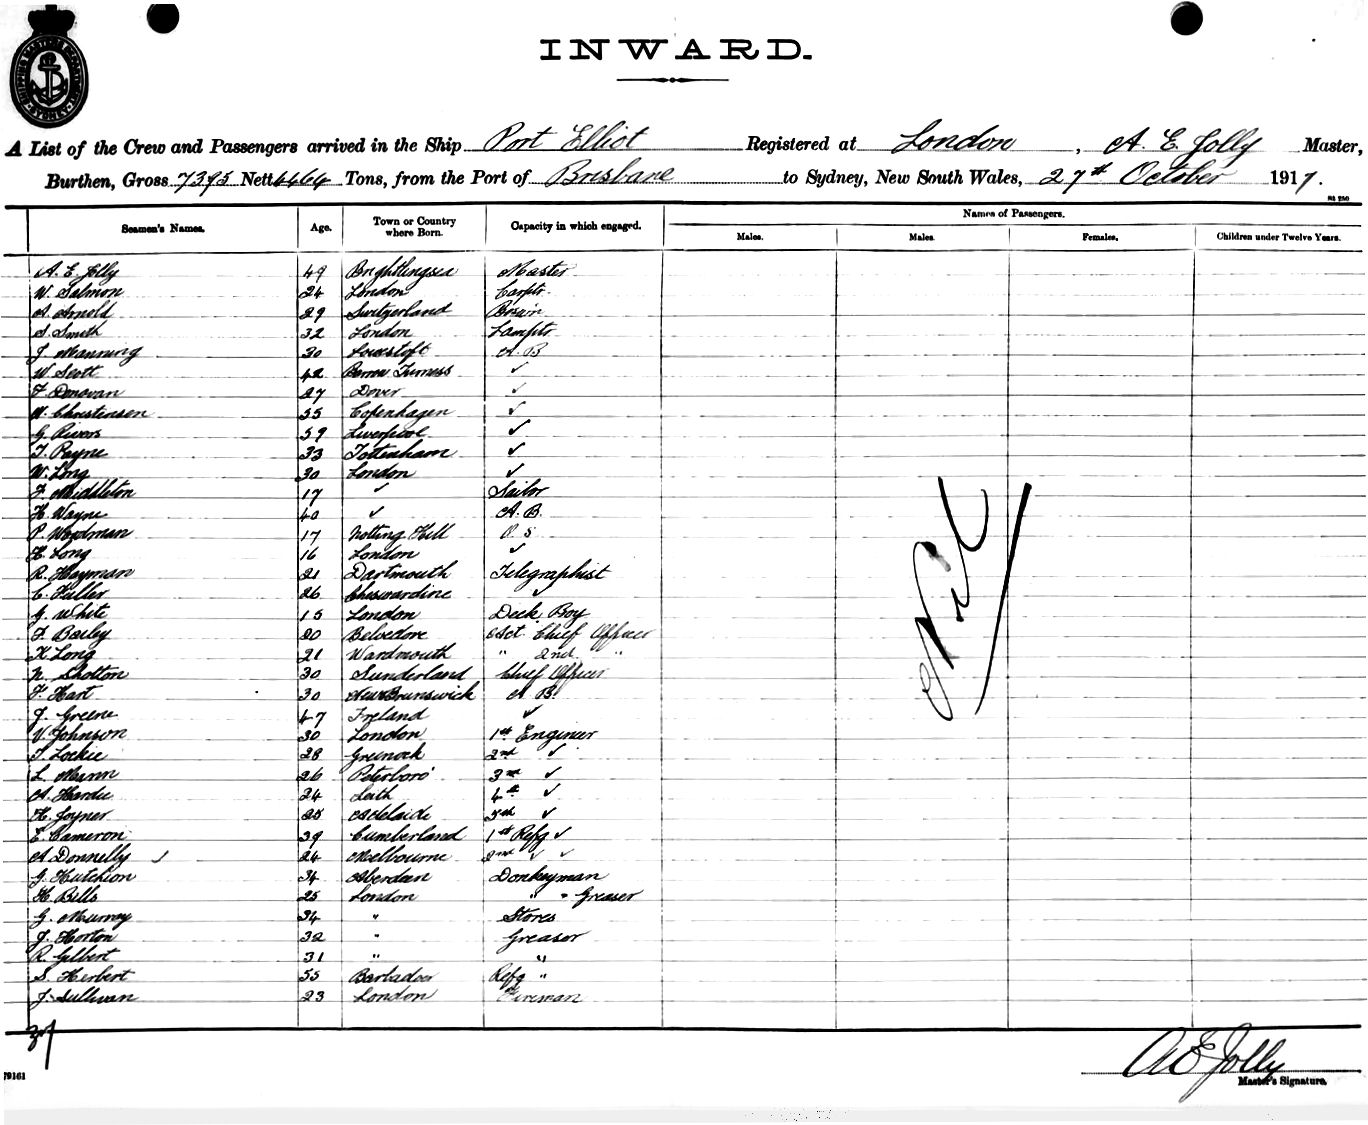 SHIPPING MASTER'S DEPARTMENT SYDNEY
INWARD.
A List of the Crew and Passengers arrived in the Ship Port Elliot Registered at London, A. E. Jolly Master,
Burthen, Gross 7395 Nett 4464 Tons, from the Port of Brisbane to Sydney, New South Wales, 27th October 1917.
Seamen's Names. Age. Town or Country where Born. Capacity in which engaged. Names of Passengers.
Males. Males. Females. Children under Twelve Years.
A. E. Jolly 49 Brightlingsea Master
W. Salmon 24 London Carptr.
A. Arnold 29 Switzerland Bosun
S. Smith 32 London Lamptr
J. Manning 30 Lowestoft A. B
W. Scott 42 Barrow Furness ✓
F. Donovan 27 Dover ✓
N. Christensen 55 Copenhagen ✓
G. Rivers 59 Liverpool ✓
T. Payne 33 Tottenham ✓
W. Long 30 London ✓
F. Middleton 17 ✓ Sailor
H. Wayne 40 ✓ A. B.
P. Woodman 17 Notting Hill O. S
H. Long 16 London ✓
R. Hayman 21 Dartmouth Telegraphist
C. Fuller 26 Cheswardine ✓
G. White 15 London Deck Boy
F. Bailey 20 Belvedore Chief Officer
K Long 21 Wardmouth " 2nd "
N. Sholton 30 Sunderland Chief Officer
F. Hart 30 New Brunswick A. B.
J. Greene 47 Ireland ✓
V. Johnson 30 London 1st Engineer
T. Lockie 28 Greenock 2nd ✓
L. Mann 26 Peterboro' 3rd ✓
A. Hardie 24 Leith 4th ✓
H. Joyner 25 Adelaide 5th ✓
E. Cameron 39 Cumberland 1st Refg ✓
A. Donnelly ✓ 24 Melbourne 2nd ✓ ✓
G. Hutchion 34 Aberdeen Donkeyman
H. Bills 25 London " Greaser
G. Murray 34 " Stores
J. Horton 32 " Greaser
R. Gilbert 31 " "
S. Herbert 55 Barbadoes Refg "
J. Sullivan 23 London Fireman
Nil
37
A E Jolly
Master's Signature.
79161